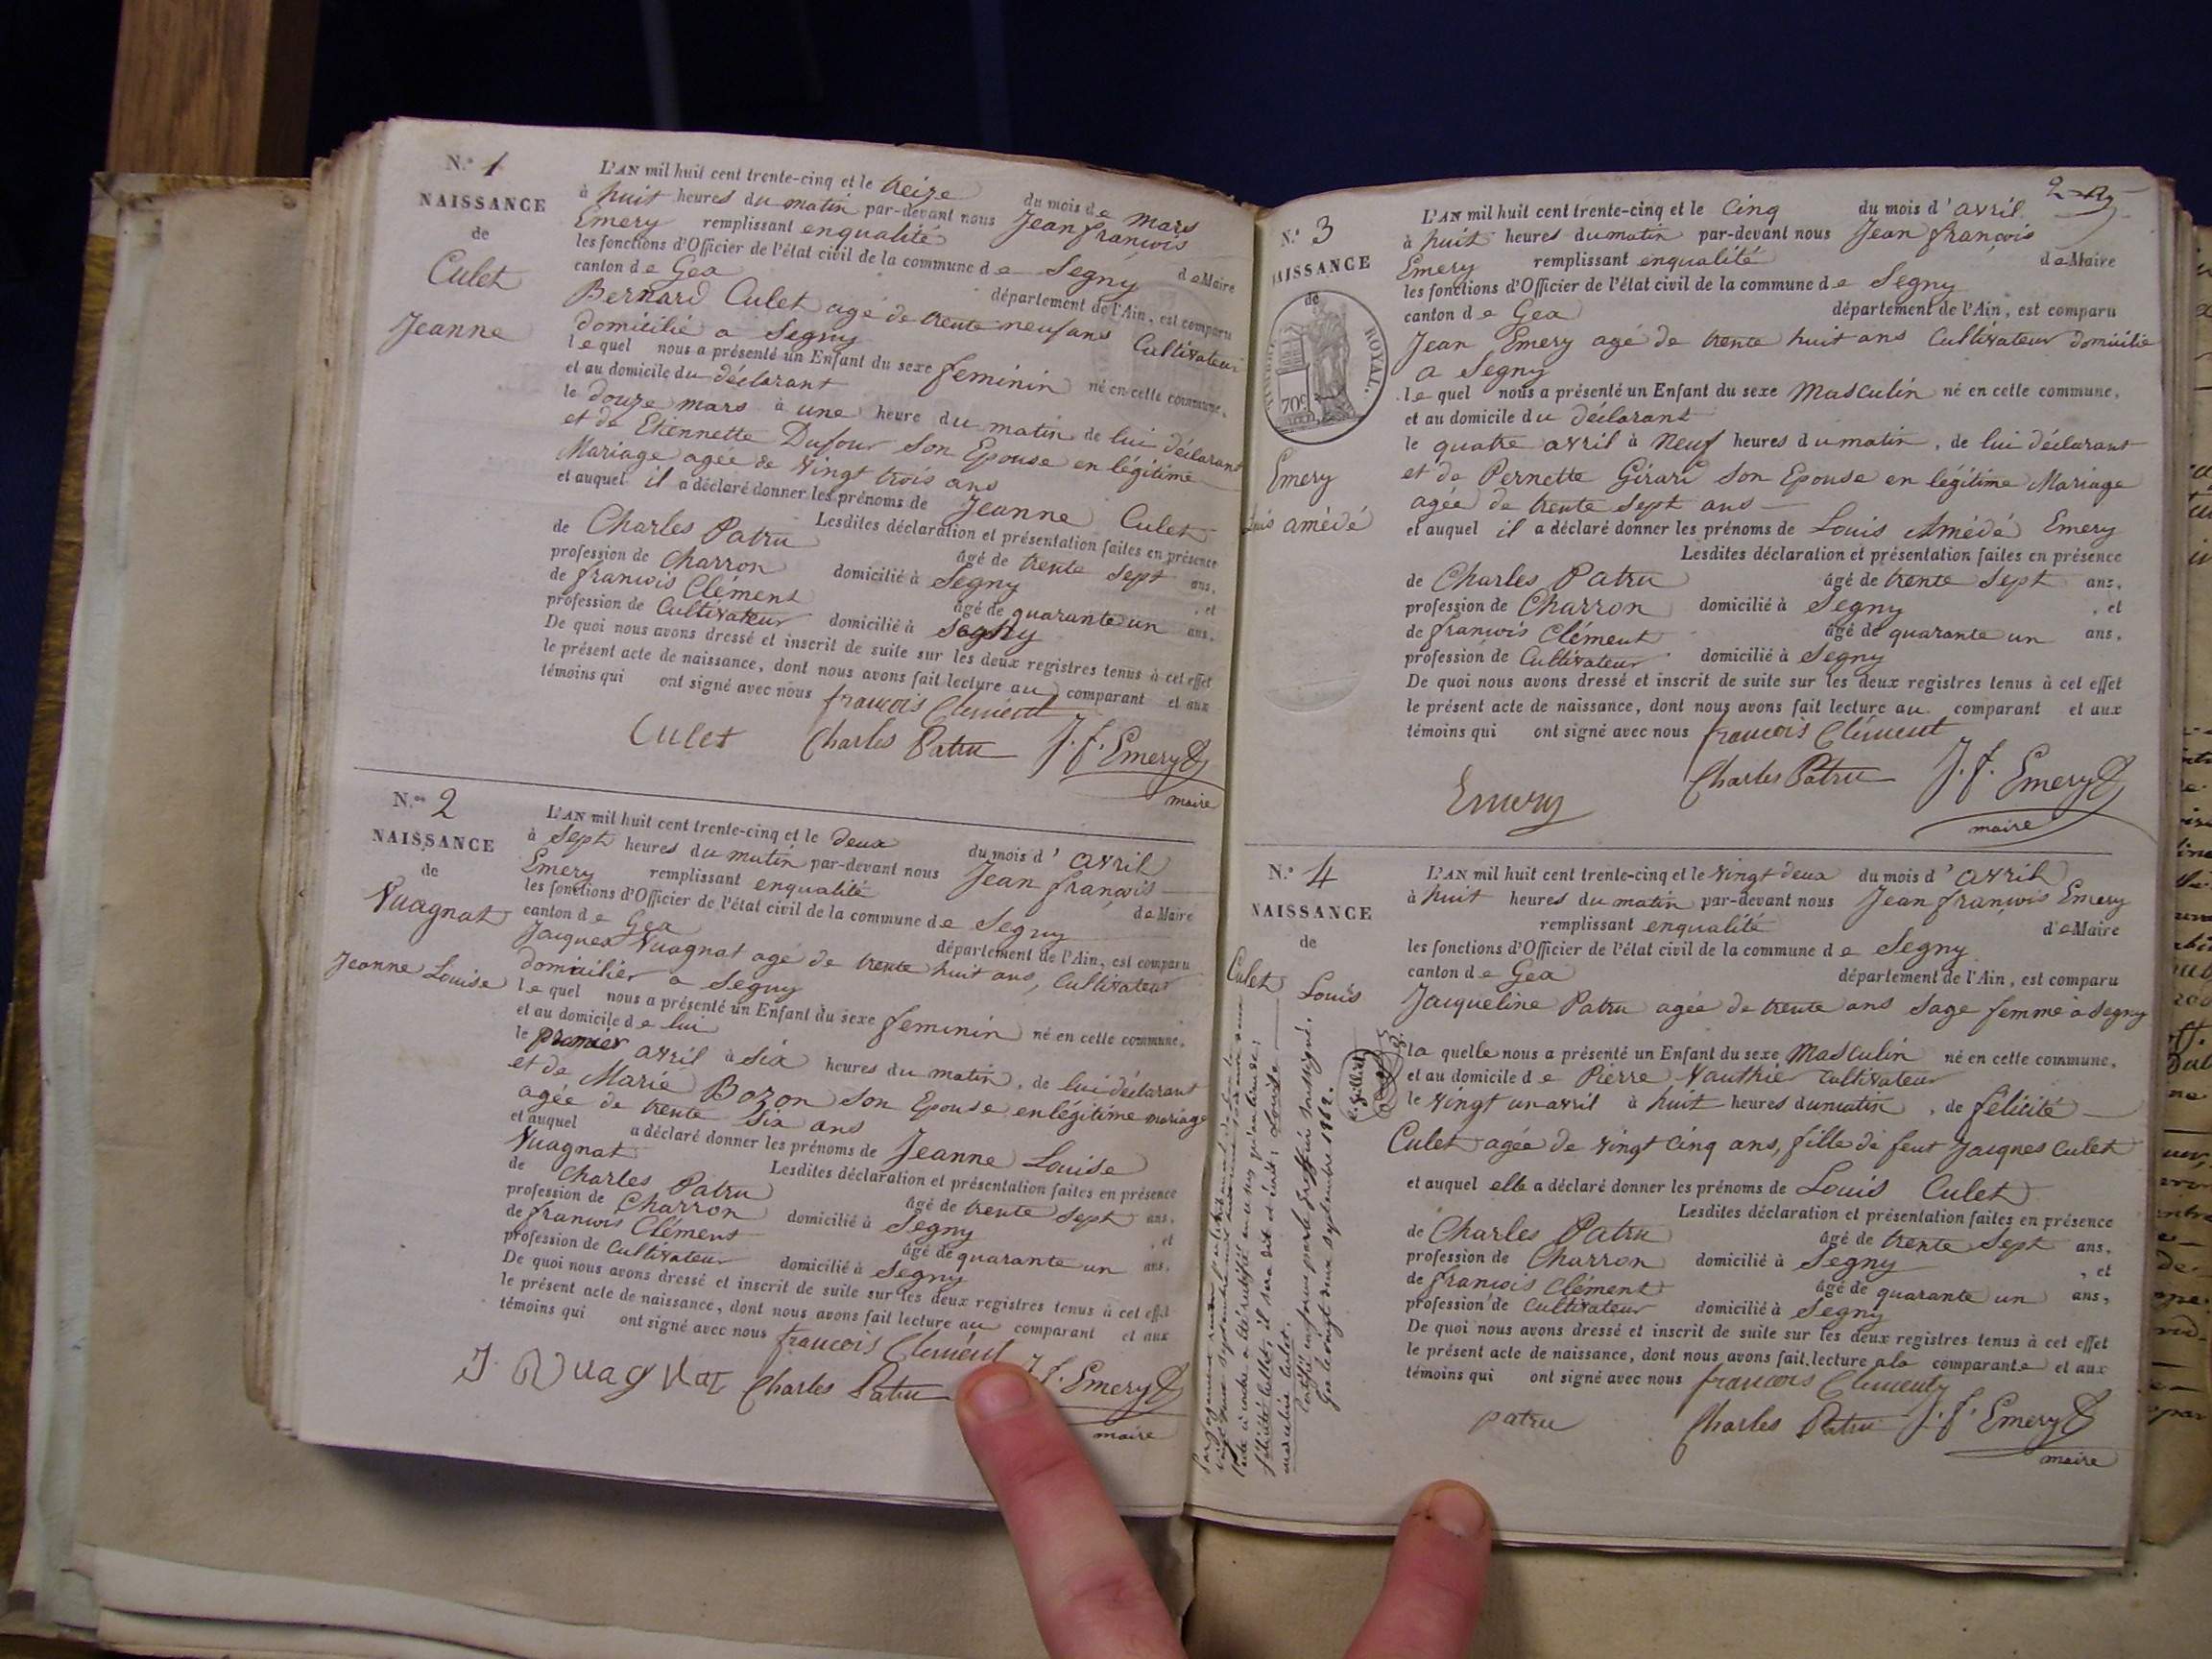 N.° 1
NAISSANCE
de
Culet
Jeanne
L'AN mil huit cent trente-cinq et le treize du mois de mars
à huit heures du matin par-devant nous Jean françois
Emery remplissant enqualité de Maire
les fonctions d'Officier de l'état civil de la commune de Segny
canton de Gex département de l'Ain, est comparu
Bernard Culet agé de trente neuf ans Cultivateur
domicilié a Segny
lequel nous a présenté un Enfant du sexe feminin né en cette commune,
et au domicile du déclarant
le douze mars à une heure du matin de lui déclarant
et de Etiennette Dufour son Epouse en légitime
Mariage agée de vingt trois ans
et auquel il a déclaré donner les prénoms de Jeanne Culet
Lesdites déclaration et présentation faites en présence
de Charles Patru âgé de trente sept ans,
profession de charron domicilié à Segny , et
de francois Clément âgé de quarante un ans,
profession de Cultivateur domicilié à Segny
De quoi nous avons dressé et inscrit de suite sur les deux registres tenus à cet effet
le présent acte de naissance, dont nous avons fait lecture au comparant et aux
témoins qui ont signé avec nous francois Clément
Culet Charles Patru J. f. Emery
maire
N.° 2
NAISSANCE
de
Vuagnat
Jeanne Louise
L'AN mil huit cent trente-cinq et le deux du mois d' avril
à Sept heures du matin par-devant nous Jean françois
Emery remplissant enqualité de Maire
les fonctions d'Officier de l'état civil de la commune de Segny
canton de Gex département de l'Ain, est comparu
Jacques Vuagnat agé de trente huit ans, Cultivateur
domicilier a Segny
lequel nous a présenté un Enfant du sexe feminin né en cette commune,
et au domicile de lui
le premier avril à six heures du matin, de lui déclarant
et de Marie Bozon son Epouse en légitime mariage
agée de trente six ans
et auquel a déclaré donner les prénoms de Jeanne Louise
Vuagnat
Lesdites déclaration et présentation faites en présence
de Charles Patru âgé de trente sept ans,
profession de Charron domicilié à Segny , et
de francois Clément âgé de quarante un ans,
profession de Cultivateur domicilié à Segny
De quoi nous avons dressé et inscrit de suite sur les deux registres tenus à cet effet
le présent acte de naissance, dont nous avons fait lecture au comparant et aux
témoins qui ont signé avec nous francois Clément
J. Vuagnat Charles Patru J. f. Emery
maire
N.° 3
NAISSANCE
de
ROYAL.
70c
Emery
Louis amédé
L'AN mil huit cent trente-cinq et le Cinq du mois d' avril
à huit heures du matin par-devant nous Jean françois
Emery remplissant enqualité de Maire
les fonctions d'Officier de l'état civil de la commune de Segny
canton de Gex département de l'Ain, est comparu
Jean Emery agé de trente huit ans Cultivateur domicilié
a Segny
lequel nous a présenté un Enfant du sexe Masculin né en cette commune,
et au domicile du déclarant
le quatre avril à neuf heures du matin, de lui déclarant
et de Pernette Girard son Epouse en légitime Mariage
agée de trente sept ans
et auquel il a déclaré donner les prénoms de Louis Amédé Emery
Lesdites déclaration et présentation faites en présence
de Charles Patru âgé de trente sept ans,
profession de Charron domicilié à Segny , et
de francois Clément âgé de quarante un ans,
profession de Cultivateur domicilié à Segny
De quoi nous avons dressé et inscrit de suite sur les deux registres tenus à cet effet
le présent acte de naissance, dont nous avons fait lecture au comparant et aux
témoins qui ont signé avec nous francois Clément
Emery Charles Patru J. f. Emery
maire
N.° 4
NAISSANCE
de
Culet Louis
L'AN mil huit cent trente-cinq et le vingt deux du mois d' avril
à huit heures du matin par-devant nous Jean françois Emery
remplissant enqualité de Maire
les fonctions d'Officier de l'état civil de la commune de Segny
canton de Gex département de l'Ain, est comparu
Jacqueline Patru agée de trente ans sage femme à Segny
laquelle nous a présenté un Enfant du sexe Masculin né en cette commune,
et au domicile de Pierre Vauthier cultivateur
le vingt un avril à huit heures du matin, de félicité
Culet agée de vingt cinq ans, fille de feut Jacques Culet
et auquel elle a déclaré donner les prénoms de Louis Culet
Lesdites déclaration et présentation faites en présence
de Charles Patru âgé de trente sept ans,
profession de Charron domicilié à Segny , et
de francois Clément âgé de quarante un ans,
profession de Cultivateur domicilié à Segny
De quoi nous avons dressé et inscrit de suite sur les deux registres tenus à cet effet
le présent acte de naissance, dont nous avons fait lecture ala comparante et aux
témoins qui ont signé avec nous francois Clement
patru Charles Patru J. f. Emery
maire
Par jugement rendu
l'acte ci contre a été rectifié en ce sens qu'au lieu de:
félicité Culet, il sera dit et écrit: Louise
Certifié conforme par le greffier soussigné.
Gex le vingt deux septembre 1862.